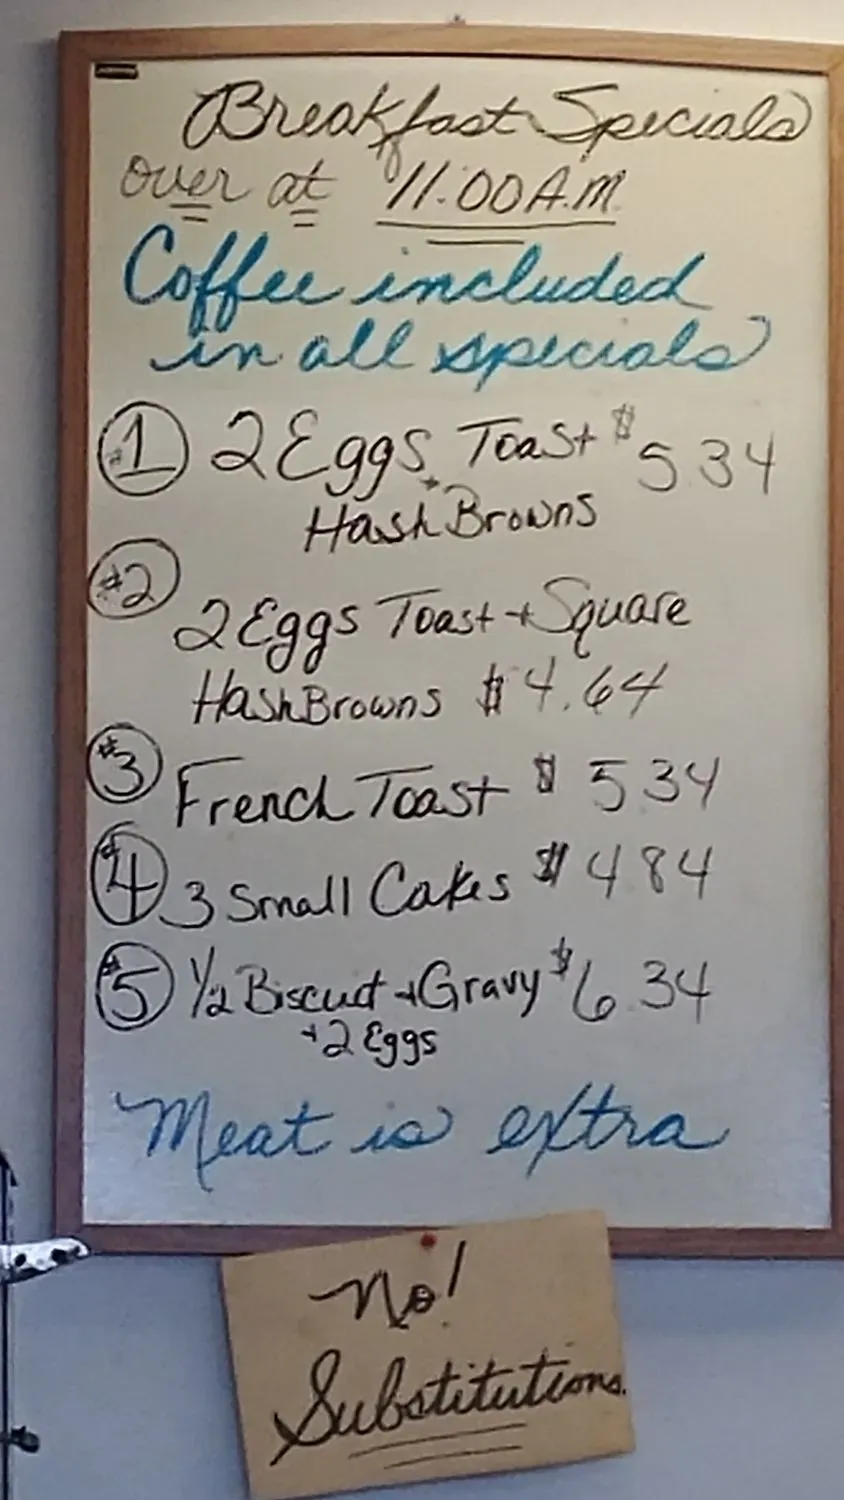 Breakfast Specials
over at 11:00 A.M.
Coffee included
in all specials
#1 2 Eggs Toast $5.34
+
Hash Browns
#2
2 Eggs Toast + Square
Hash Browns $4.64
#3 French Toast $5.34
#4 3 Small Cakes $4.84
#5 1/2 Biscuit + Gravy $6.34
+2 Eggs
Meat is extra
No!
Substitutions.